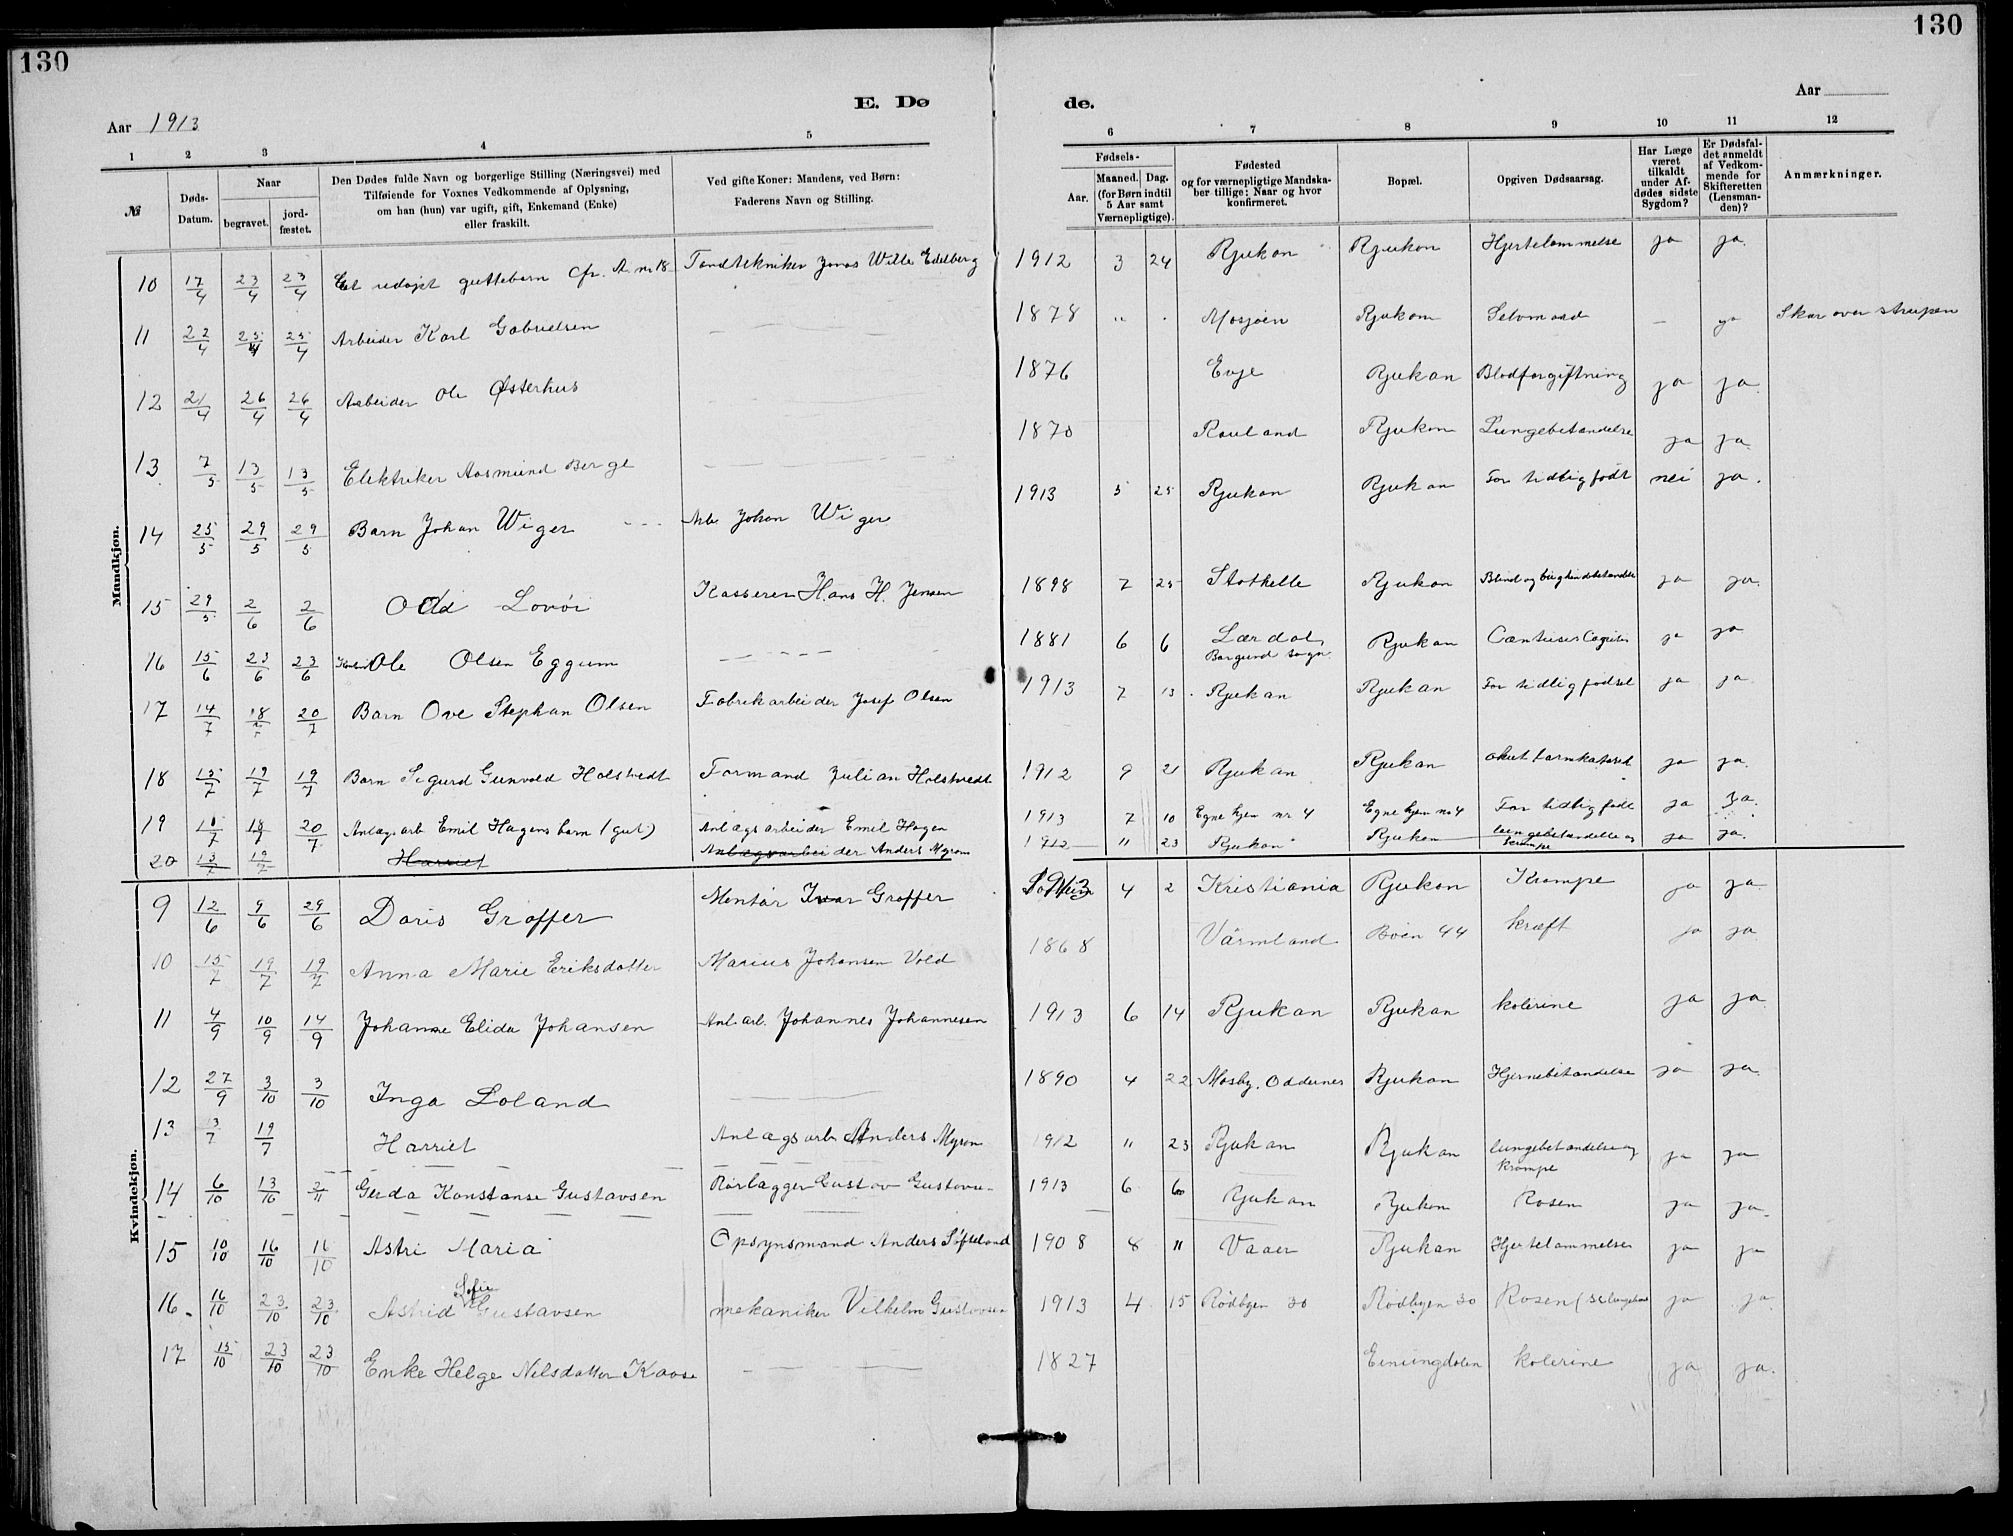 130
130
E. Dø
de.
Aar 1913
Aar
1 2 3 4 5 6 7 8 9 10 11 12
№
Døds-Datum.
Naar
begravet.
jord-fæstet.
Den Dødes fulde Navn og borgerlige Stilling (Næringsvei) med
Tilføiende for Voxnes Vedkommende af Oplysning,
om han (hun) var ugift, gift, Enkemand (Enke)
eller fraskilt.
Ved gifte Koner: Mandens, ved Børn:
Faderens Navn og Stilling.
Fødsels-
Aar.
Maaned. Dag.
(for Børn indtil
5 Aar samt
Værnepligtige).
Fødested
og for værnepligtige Mandska-
ber tillige: Naar og hvor
konfirmeret.
Bopæl.
Opgiven Dødsaarsag.
Har Læge
været
tilkaldt
under Af-
dødes sidste
Sygdom?
Er Dødsfal-
det anmeldt
af Vedkom-
mende for
Skifteretten
(Lensman-
den)?
Anmærkninger.
Mandkjøn.
10 17/4 23/4 23/4 Et udøpt guttebarn cfr. A nr 18 Tandtekniker Jonas Wille Edelberg 1912 3 24 Rjukan Rjukan Hjertelammelse ja ja
11 22/4 25/4 25/4 Arbeider Karl Gabrielsen 1878 " . Mosjøen Rjukan Selvmord — ja Skar over strupen
12 21/4 26/4 26/4 Arbeider Ole Østerhus 1876 Evje Rjukan Blodforgiftning ja ja
13 7/5 13/5 13/5 Elektriker Aasmund Berge 1870 Rauland Rjukan Lungebetændelse ja ja
14 25/5 29/5 29/5 Barn Johan Wiger Arb. Johan Wiger 1913 5 25 Rjukan Rjukan For tidlig født nei ja.
15 29/5 2/6 2/6 Odd Lovøi Kasserer Hans H. Jensen 1898 7 25 Stathelle Rjukan ja ja.
16 15/6 23/6 23/6 Ole Olsen Eggum 1881 6 6 Lærdal, Borgund sogn Rjukan ja ja
17 14/7 18/7 20/7 Barn Ove Stephan Olsen Fabrikarbeider Josef Olsen 1913 7 13. Rjukan Rjukan For tidlig fødsel ja ja
18 15/7 19/7 19/7 Barn Sigurd Gunvald Holstvedt Formand Julian Holstvedt 1912 9 21 Rjukan Rjukan akut tarmkatarrh ja ja.
19 18/7 20/7 Anlægsarb Emil Hagens barn (gut) Anlægsarbeider Emil Hagen 1913 7 10 Egne hjem nr 4 Egne hjem nr 4 For tidlig født ja ja.
20 13/7 19/7 Harriet Anlægsarbeider Anders Myran 1912 11 23 Rjukan Rjukan lungebetændelse og krampe ja ja.
Kvindekjøn.
9 12/6 9/6 29/6 Doris Groffer Montør Ivar Groffer 4 2 Kristiania Rjukan Krampe ja ja
10 15/7 19/7 19/7 Anna Marie Eriksdatter Marius Johansen Vold 1868 Värmland Bøen 44 kræft ja ja
11 4/9 10/9 14/9 Johanne Elida Johansen Anl. arb. Johannes Johannesen 1913 6 14 Rjukan Rjukan kolerine ja ja
12 27/9 3/10 3/10 Inga Loland 1890 4 22 Mosby, Oddernes Rjukan Hjernebetændelse ja ja
13 3/7 19/7 Harriet Anlægsarb Anders Myran 1912 11 23 Rjukan Rjukan lungebetændelse og krampe ja ja
14 6/10 13/10 2/11 Gerda Konstanse Gustavsen Rørlægger Gustav Gustavsen 1913 6 6 Rjukan Rjukan Rosen ja ja
15 10/10 16/10 16/10 Astri Maria Opsynsmand Anders Søfteland 1908 8 11 Vaaer Rjukan Hjertelammelse ja ja
16. 16/10 23/10 23/10 Astrid Sofie Gustavsen mekaniker Vilhelm Gustavsen 1913 4 15 Rødbyen 30 Rødbyen 30 Rosen ja ja
17 15/10 23/10 23/10 Enke Helge Nilsdatter Kaase 1827 Einungdalen kolerine ja ja.